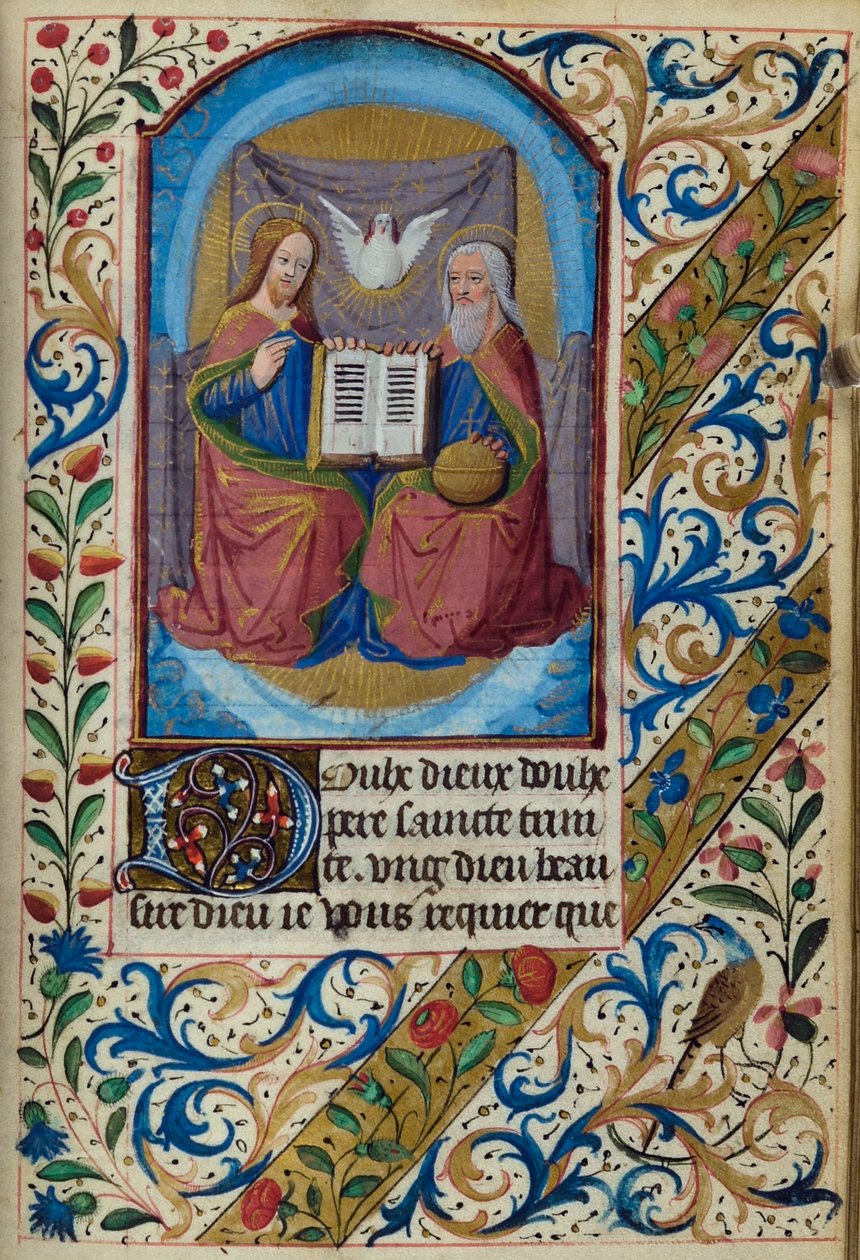 Doulx dieux doulx
pere saincte trini
te. vng dieu beau
sire dieu ie vous requier que